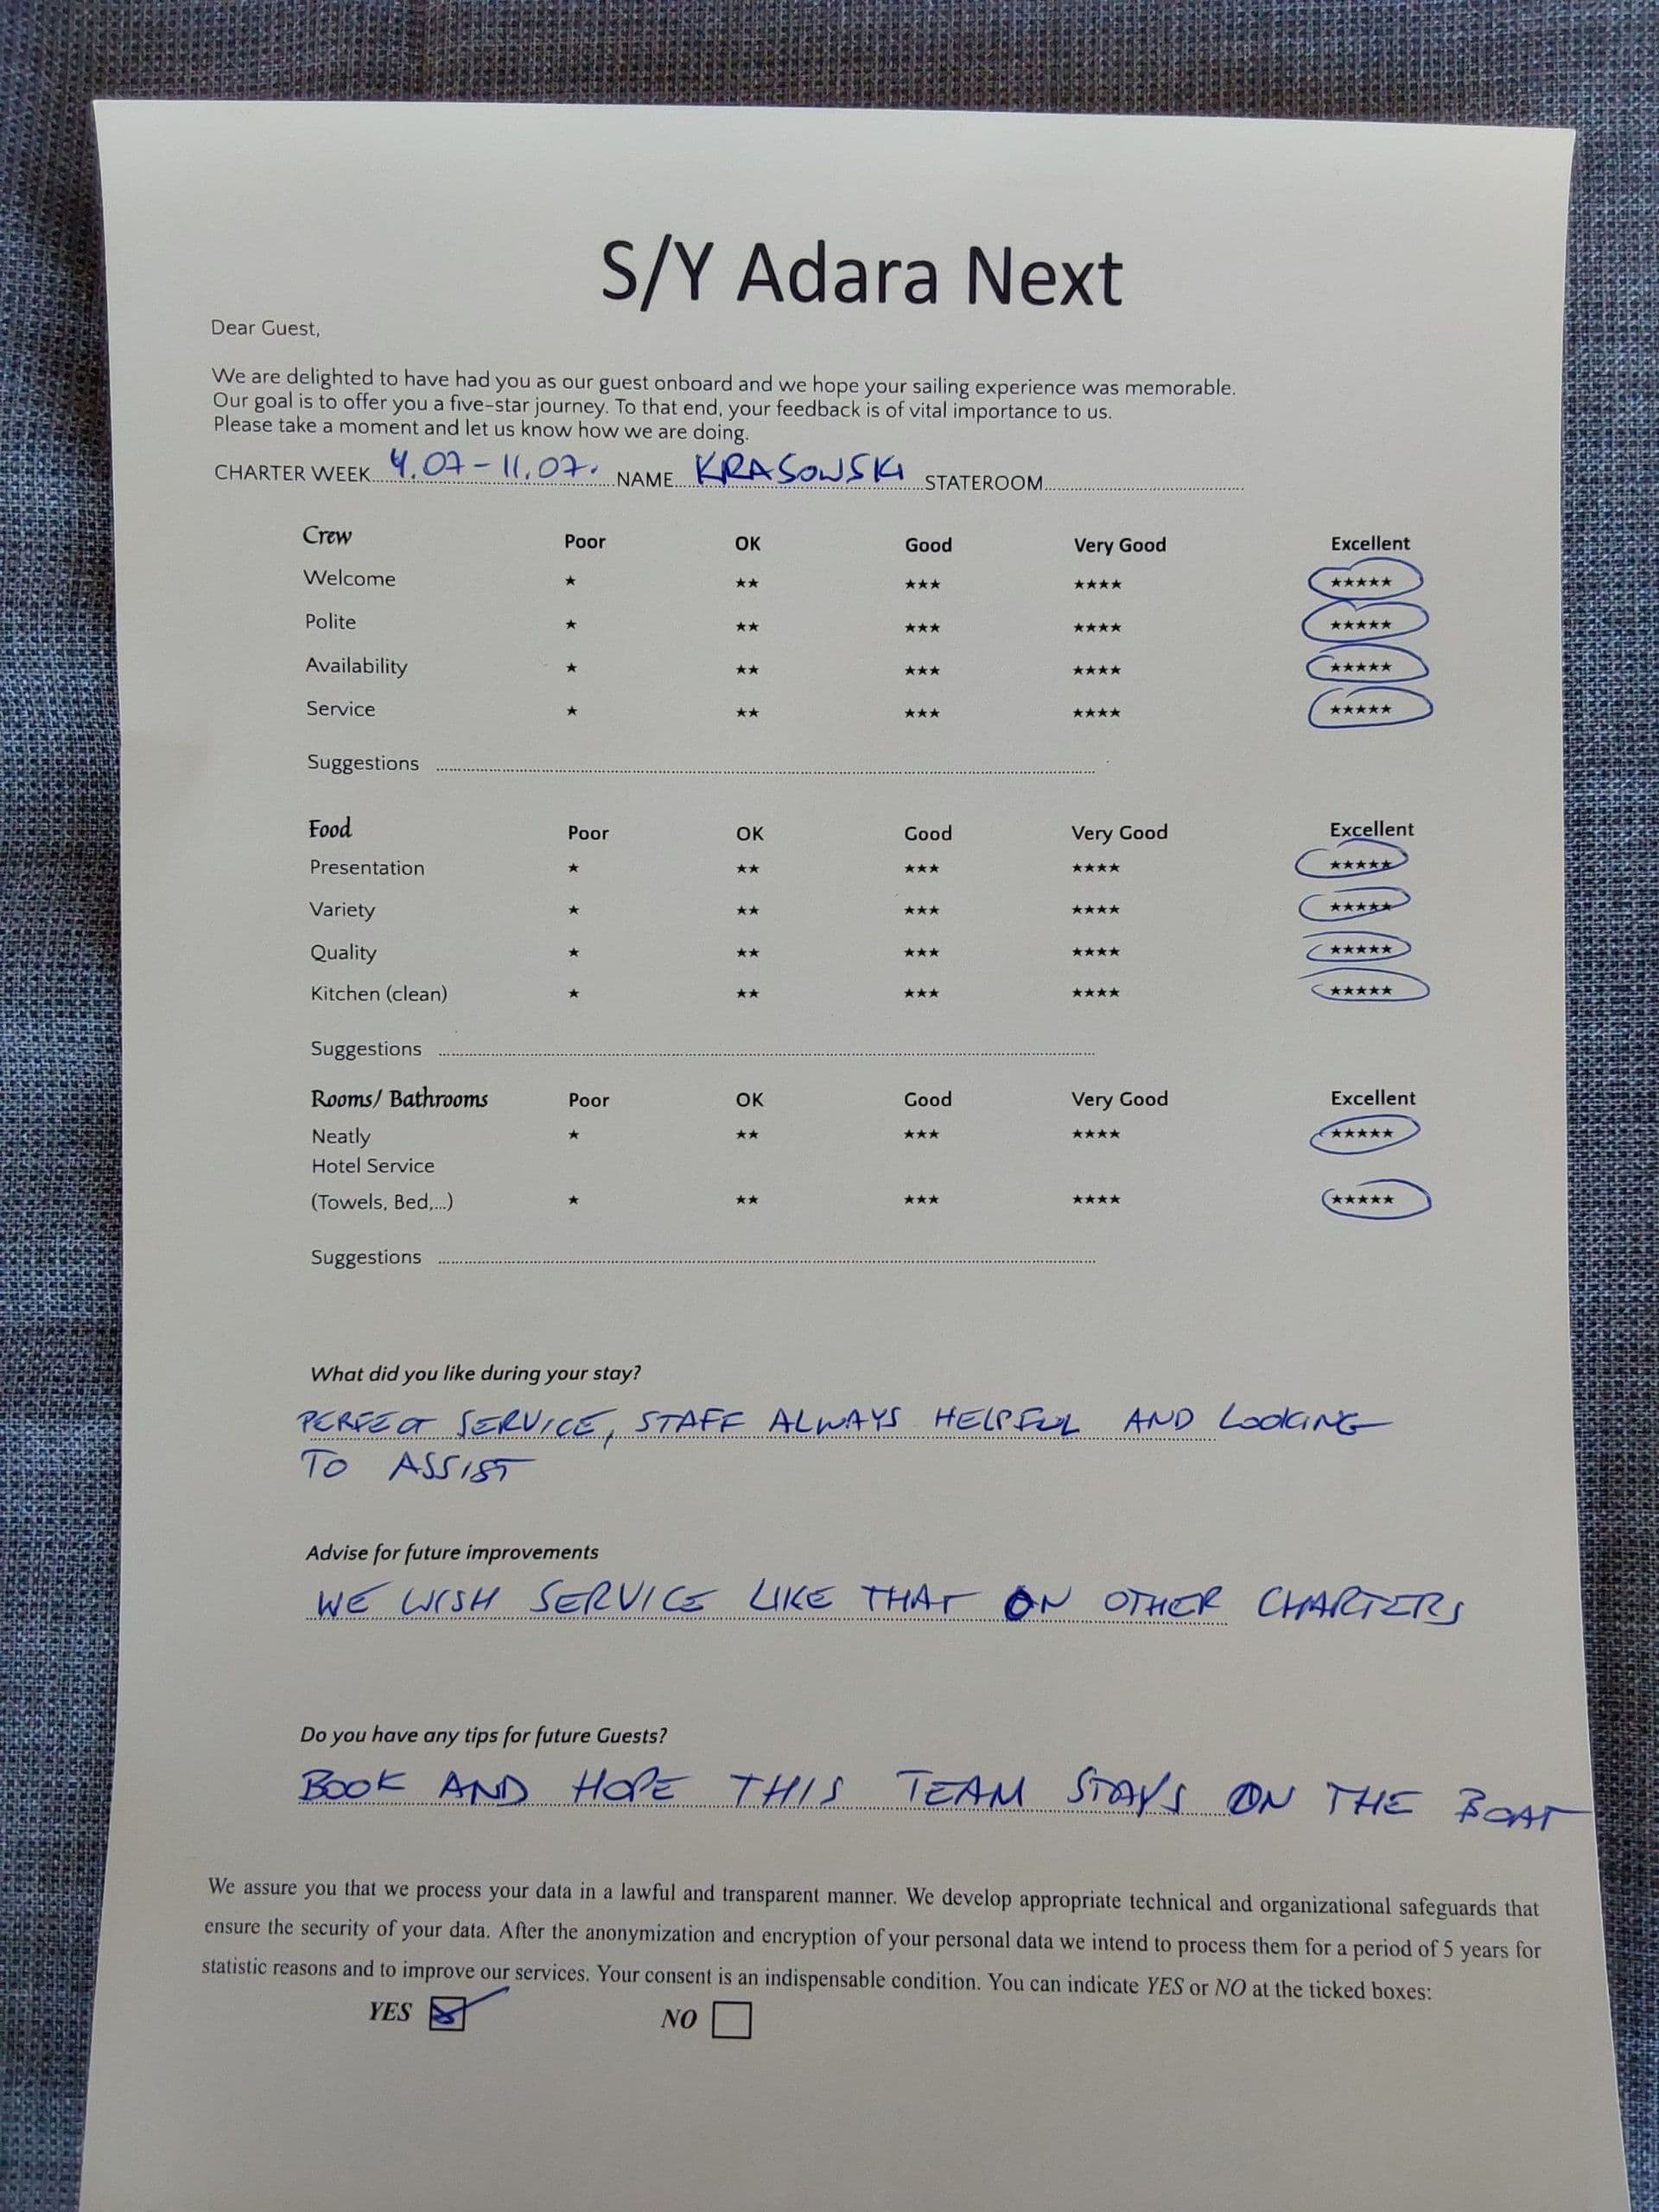 S/Y Adara Next
Dear Guest,
We are delighted to have had you as our guest onboard and we hope your sailing experience was memorable.
Our goal is to offer you a five-star journey. To that end, your feedback is of vital importance to us.
Please take a moment and let us know how we are doing.
CHARTER WEEK 4.07-11.07. NAME KRASOWSKI STATEROOM
Crew Poor OK Good Very Good Excellent
Welcome ★ ★★ ★★★ ★★★★ ★★★★★
Polite ★ ★★ ★★★ ★★★★ ★★★★★
Availability ★ ★★ ★★★ ★★★★ ★★★★★
Service ★ ★★ ★★★ ★★★★ ★★★★★
Suggestions
Food Poor OK Good Very Good Excellent
Presentation ★ ★★ ★★★ ★★★★ ★★★★★
Variety ★ ★★ ★★★ ★★★★ ★★★★★
Quality ★ ★★ ★★★ ★★★★ ★★★★★
Kitchen (clean) ★ ★★ ★★★ ★★★★ ★★★★★
Suggestions
Rooms/ Bathrooms Poor OK Good Very Good Excellent
Neatly ★ ★★ ★★★ ★★★★ ★★★★★
Hotel Service
(Towels, Bed,...) ★ ★★ ★★★ ★★★★ ★★★★★
Suggestions
What did you like during your stay?
PERFECT SERVICE, STAFF ALWAYS HELPFUL AND LOOKING
TO ASSIST
Advise for future improvements
WE WISH SERVICE LIKE THAT ON OTHER CHARTERS
Do you have any tips for future Guests?
BOOK AND HOPE THIS TEAM STAYS ON THE BOAT
We assure you that we process your data in a lawful and transparent manner. We develop appropriate technical and organizational safeguards that
ensure the security of your data. After the anonymization and encryption of your personal data we intend to process them for a period of 5 years for
statistic reasons and to improve our services. Your consent is an indispensable condition. You can indicate YES or NO at the ticked boxes:
YES NO